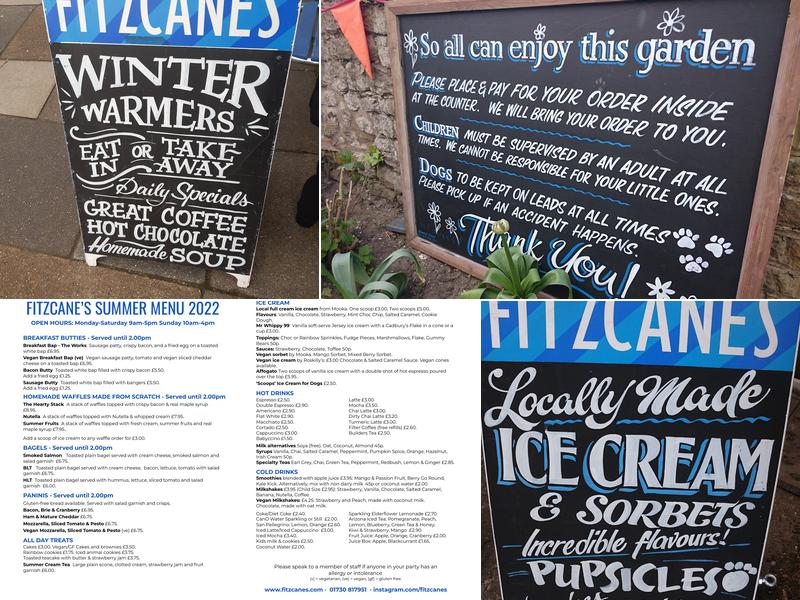 FITZCANES
WINTER
WARMERS
EAT IN OR TAKE AWAY
Daily Specials
GREAT COFFEE
HOT CHOCOLATE
Homemade SOUP
So all can enjoy this garden
PLEASE PLACE & PAY FOR YOUR ORDER INSIDE
AT THE COUNTER. WE WILL BRING YOUR ORDER TO YOU.
CHILDREN MUST BE SUPERVISED BY AN ADULT AT ALL
TIMES. WE CANNOT BE RESPONSIBLE FOR YOUR LITTLE ONES.
DOGS TO BE KEPT ON LEADS AT ALL TIMES
PLEASE PICK UP IF AN ACCIDENT HAPPENS.
Thank You!
FITZCANE'S SUMMER MENU 2022
OPEN HOURS: Monday-Saturday 9am-5pm Sunday 10am-4pm
BREAKFAST BUTTIES - Served until 2.00pm
Breakfast Bap - The Works Sausage patty, crispy bacon, and a fried egg on a toasted
white bap £6.95.
Vegan Breakfast Bap (ve) Vegan sausage patty, tomato and vegan sliced cheddar
cheese on a toasted bap £6.95.
Bacon Butty Toasted white bap filled with crispy bacon £5.50.
Add a fried egg £1.25.
Sausage Butty Toasted white bap filled with bangers £5.50.
Add a fried egg £1.25.
HOMEMADE WAFFLES MADE FROM SCRATCH - Served until 2.00pm
The Hearty Stack A stack of waffles topped with crispy bacon & real maple syrup
£8.95.
Nutella A stack of waffles topped with Nutella & whipped cream £7.95.
Summer Fruits A stack of waffles topped with fresh cream, summer fruits and real
maple syrup £7.95.
Add a scoop of ice cream to any waffle order for £3.00.
BAGELS - Served until 2.00pm
Smoked Salmon Toasted plain bagel served with cream cheese, smoked salmon and
salad garnish £6.75.
BLT Toasted plain bagel served with cream cheese, bacon, lettuce, tomato with salad
garnish £6.75.
HLT Toasted plain bagel served with hummus, lettuce, sliced tomato and salad
garnish £6.00.
PANINIS - Served until 2.00pm
Gluten-free bread available. Served with salad garnish and crisps.
Bacon, Brie & Cranberry £6.95.
Ham & Mature Cheddar £6.75.
Mozzarella, Sliced Tomato & Pesto £6.75.
Vegan Mozzarella, Sliced Tomato & Pesto (ve) £6.75.
ALL DAY TREATS
Cakes £3.00. Vegan/GF Cakes and brownies £3.50.
Rainbow cookies £1.75. Iced animal cookies £3.75.
Toasted teacake with butter & strawberry jam £3.75.
Summer Cream Tea Large plain scone, clotted cream, strawberry jam and fruit
garnish £6.00.
ICE CREAM
Local full cream ice cream from Mooka. One scoop £3.00, Two scoops £5.00.
Flavours: Vanilla, Chocolate, Strawberry, Mint Choc Chip, Salted Caramel, Cookie
Dough.
Mr Whippy 99 Vanilla soft-serve Jersey ice cream with a Cadbury's Flake in a cone or a
cup £3.00.
Toppings: Choc or Rainbow Sprinkles, Fudge Pieces, Marshmallows, Flake, Gummy
Bears 50p.
Sauces: Strawberry, Chocolate, Toffee 50p.
Vegan sorbet by Mooka. Mango Sorbet, Mixed Berry Sorbet.
Vegan ice cream by Roskilly's £3.00 Chocolate & Salted Caramel Sauce. Vegan cones
available.
Affogato Two scoops of vanilla ice cream with a double shot of hot espresso poured
over the top £5.95.
'Scoops' Ice Cream for Dogs £2.50.
HOT DRINKS
Espresso £2.50. Latte £3.00.
Double Espresso £2.90. Mocha £3.50.
Americano £2.90. Chai Latte £3.00.
Flat White £2.90. Dirty Chai Latte £3.20.
Macchiato £2.50. Turmeric Latte £3.00.
Cortado £2.50. Filter Coffee (free refills) £2.60.
Cappuccino £3.00 Builders Tea £2.50.
Babycino £1.50.
Milk alternatives Soya (free). Oat, Coconut, Almond 45p.
Syrups Vanilla, Chai, Salted Caramel, Peppermint, Pumpkin Spice, Orange, Hazelnut,
Irish Cream 50p.
Specialty Teas Earl Grey, Chai, Green Tea, Peppermint, Redbush, Lemon & Ginger £2.85.
COLD DRINKS
Smoothies blended with apple juice £3.95: Mango & Passion Fruit, Berry Go Round,
Kale Kick. Alternatively, mix with non dairy milk 45p or coconut water £2.00
Milkshakes £3.95 (Child Size £2.95): Strawberry, Vanilla, Chocolate, Salted Caramel,
Banana, Nutella, Coffee.
Vegan Milkshakes: £4.25: Strawberry and Peach, made with coconut milk.
Chocolate, made with oat milk.
Coke/Diet Coke £2.40. Sparkling Elderflower Lemonade £2.70.
CanO Water Sparkling or Still £2.00. Arizona Iced Tea; Pomegranate, Peach,
San Pellegrino: Lemon, Orange £2.60. Lemon, Blueberry, Green Tea & Honey,
Iced Latte/Iced Cappuccino £3.00. Kiwi & Strawberry, Mango £2.90.
Iced Mocha £3.40. Fruit Juice: Apple, Orange, Cranberry £2.00.
Kids milk & cookies £2.50. Juice Box: Apple, Blackcurrant £1.65.
Coconut Water £2.00.
Please speak to a member of staff if anyone in your party has an
allergy or intolerance.
(v) = vegetarian, (ve) = vegan, (gf) = gluten free.
www.fitzcanes.com · 01730 817951 · instagram.com/fitzcanes
FITZCANES
Locally Made
ICE CREAM
& SORBETS
Incredible flavours!
PUPSICLES